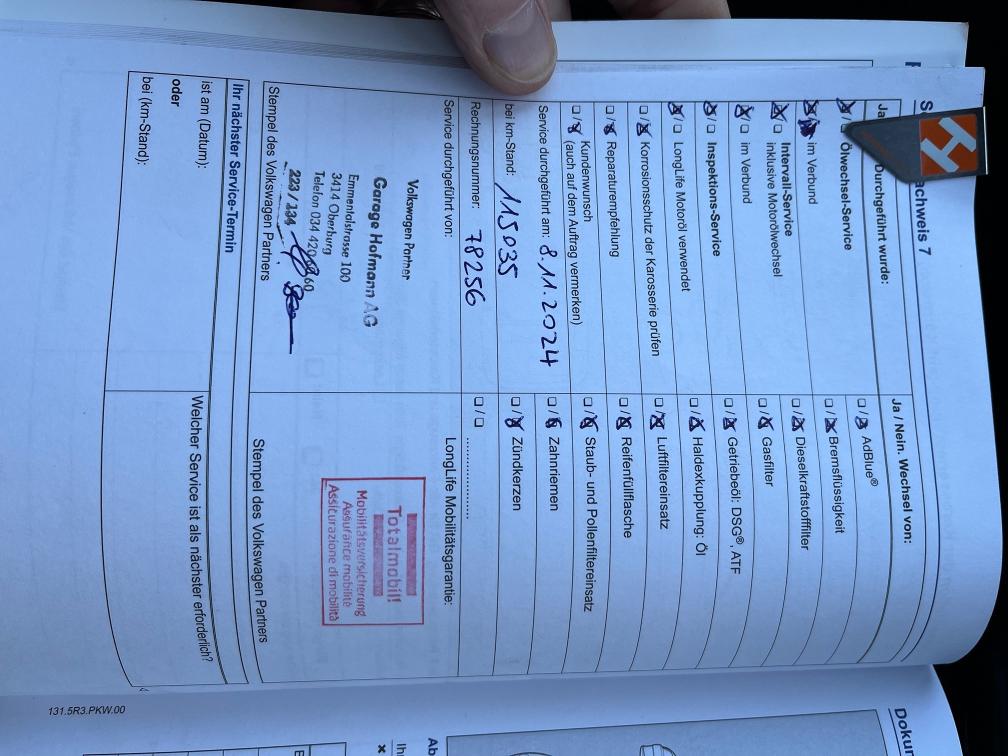 achweis 7
Durchgeführt wurde:
Ölwechsel-Service
im Verbund
Intervall-Service
inklusive Motorölwechsel
im Verbund
Inspektions-Service
LongLife Motoröl verwendet
Korrosionsschutz der Karosserie prüfen
Reparaturempfehlung
Kundenwunsch
(auch auf dem Auftrag vermerken)
Service durchgeführt am: 8.11.2024
bei km-Stand: 115035
Rechnungsnummer: 78256
Service durchgeführt von:
Volkswagen Partner
Garage Hofmann AG
Emmentalstrasse 100
3414 Oberburg
Telefon 034 420 60
223 / 134
Stempel des Volkswagen Partners
Ja / Nein. Wechsel von:
AdBlue®
Bremsflüssigkeit
Dieselkraftstofffilter
Gasfilter
Getriebeöl: DSG®, ATF
Haldexkupplung: Öl
Luftfiltereinsatz
Reifenfüllflasche
Staub- und Pollenfiltereinsatz
Zahnriemen
Zündkerzen
LongLife Mobilitätsgarantie:
Totalmobil!
Mobilitätsversicherung
Assurance mobilité
Assicurazione di mobilità
Stempel des Volkswagen Partners
Ihr nächster Service-Termin
ist am (Datum):
oder
bei (km-Stand):
Welcher Service ist als nächster erforderlich?
131.5R3.PKW.00